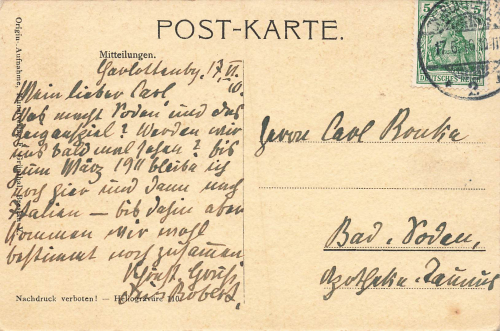 POST-KARTE.
Mitteilungen.
Charlottenbg. 17. VI. 10.
Mein lieber Carl,
Was macht Soden und das
Geigenspiel? Werden wir
uns bald mal sehen? bis
zum März 1911 bleibe ich
noch hier und dann nach
Italien – bis dahin aber
kommen wir wohl
bestimmt noch zusammen
Robert.
Herrn Carl
Bad-Soden,
Apotheke-Taunus
Nachdruck verboten! — Heliogravüre 110.
Origin. Aufnahme.
5
DEUTSCHES REICH
17.6.
2